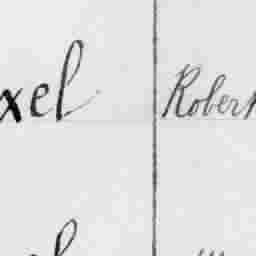 xel Robert